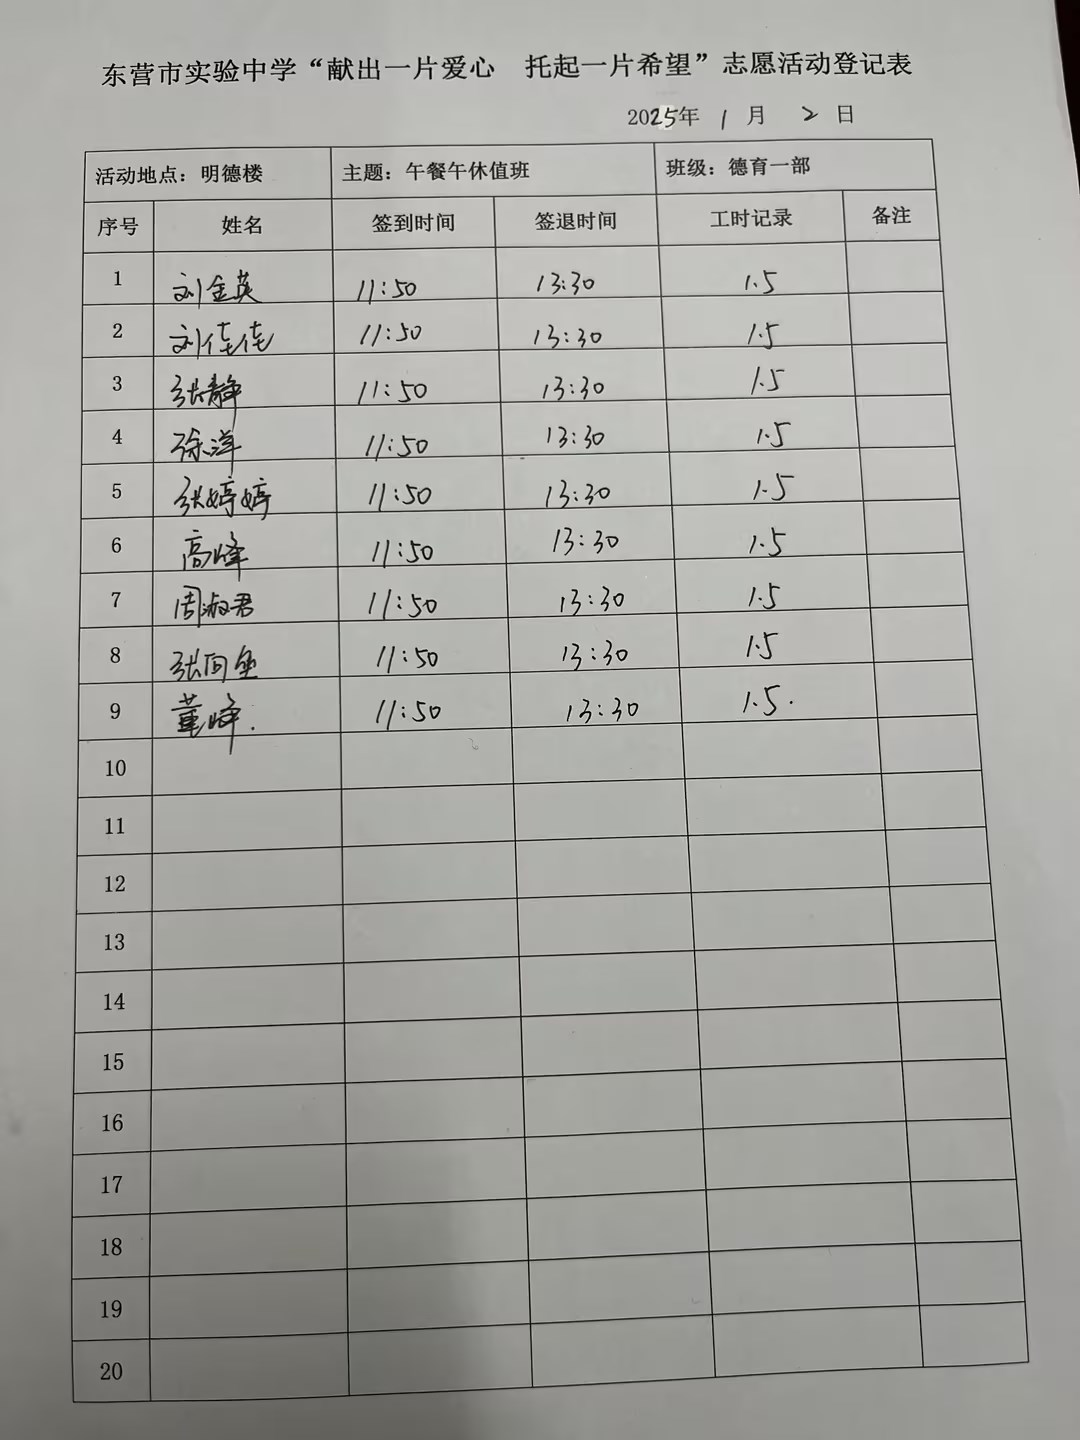 东营市实验中学“献出一片爱心 托起一片希望”志愿活动登记表
2025年 1 月 2 日
活动地点：明德楼 主题：午餐午休值班 班级：德育一部
序号 姓名 签到时间 签退时间 工时记录 备注
1 刘金英 11:50 13:30 1.5
2 刘佳佳 11:50 13:30 1.5
3 张静 11:50 13:30 1.5
4 徐洋 11:50 13:30 1.5
5 张婷婷 11:50 13:30 1.5
6 高峰 11:50 13:30 1.5
7 周淑君 11:50 13:30 1.5
8 张 11:50 13:30 1.5
9 董峰. 11:50 13:30 1.5.
10
11
12
13
14
15
16
17
18
19
20